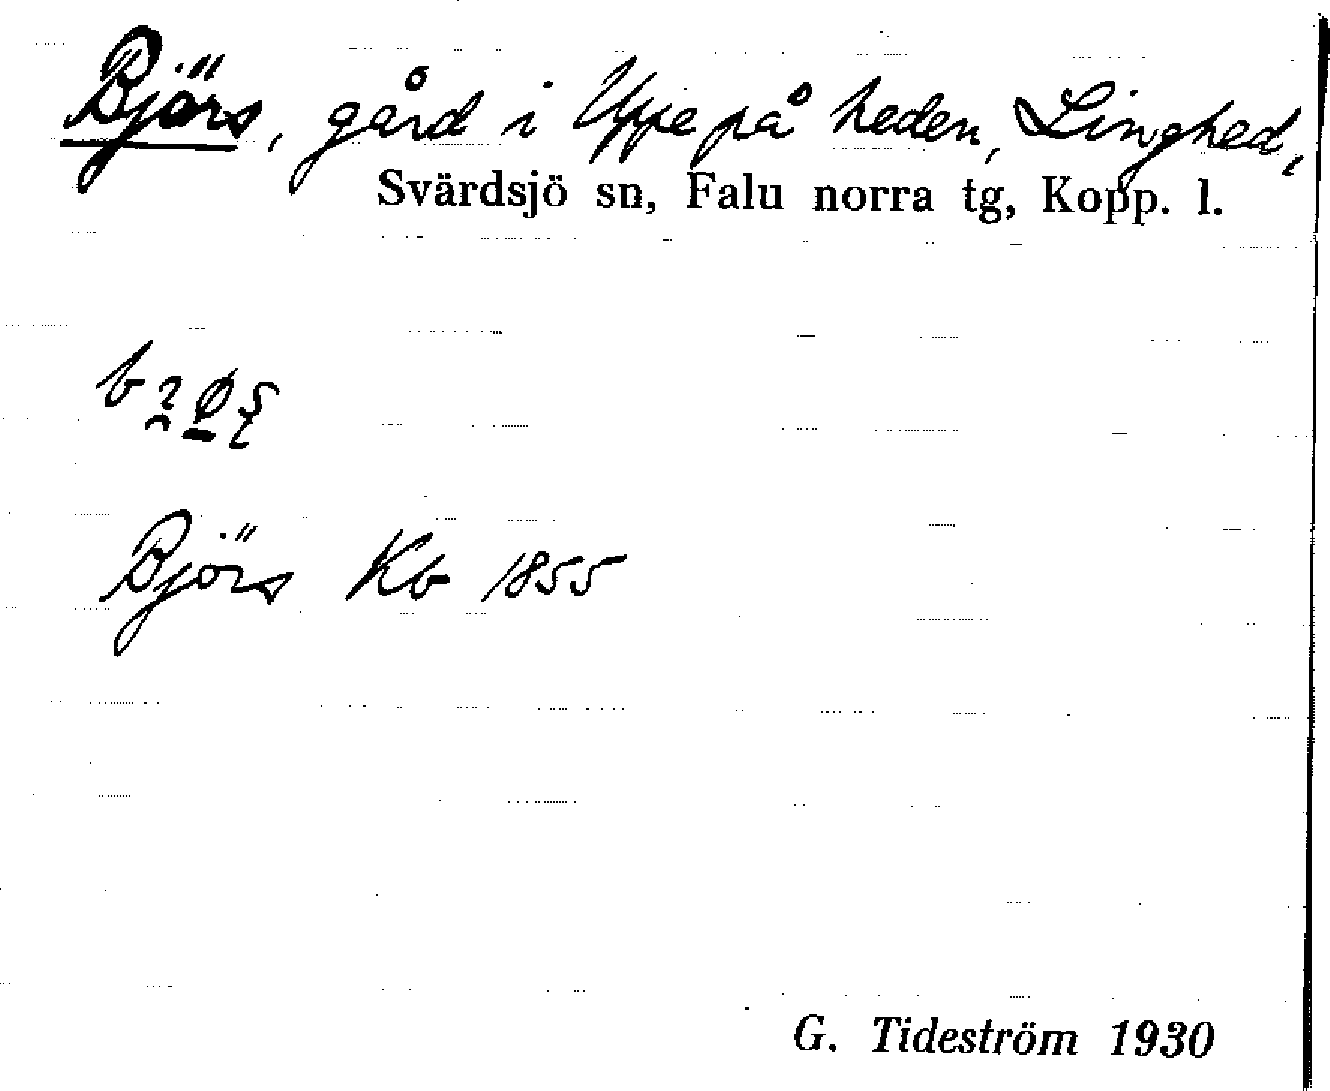 Björs, gård i Uppe på heden, Linghed,
Svärdsjö sn, Falu norra tg, Kopp. l.
Björs Kb 1855
G. Tideström 1930